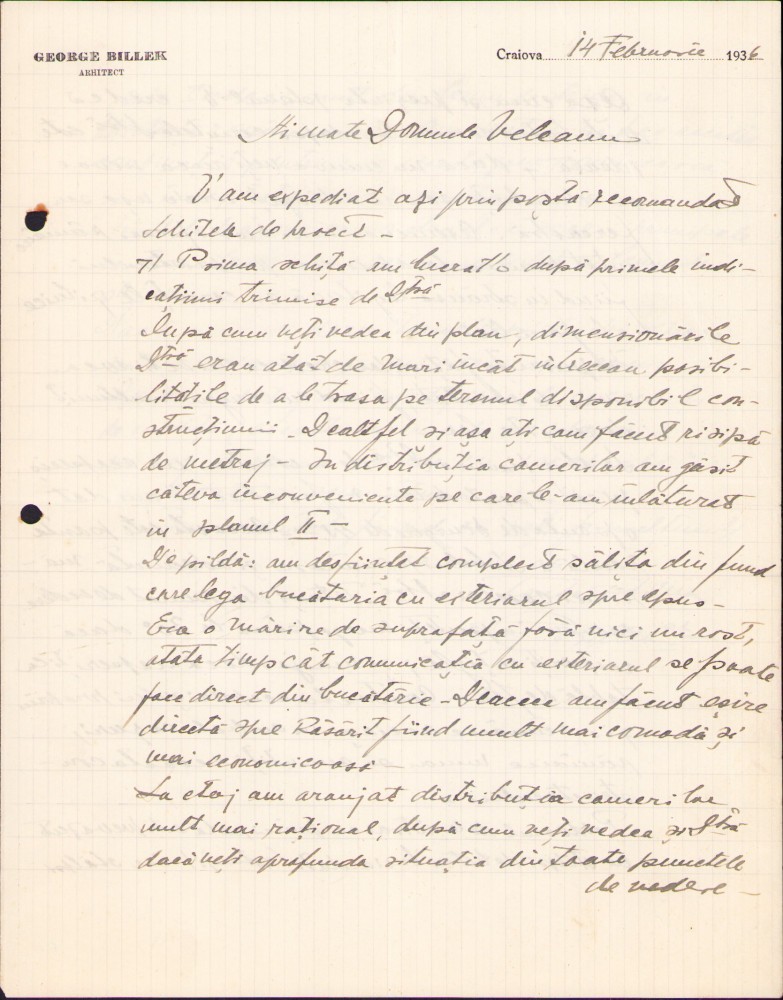 GEORGE BILLEK
ARHITECT
Craiova 14 Februarie 1936
Stimate Domnule Veleanu
V'am expediat azi prin poștă recomandat
schitele de proect –
I Prima schiță am lucrat-o după primele indi-
cațiuni trimise de Dtră
După cum veți vedea din plan, dimensionările
Dtră erau atât de mari încât intreceau posibi-
litățile de a le trasa pe terenul disponibil con-
strucțiunii – Dealtfel și așa ați cam făcut risipă
de metraj – In distribuția camerilor am găsit
câteva inconveniente pe care le-am inlăturat
in planul II –
De pildă: am desființat complect sălița din fund
care lega bucătaria cu exteriorul spre apus –
Era o mărire de suprafață fără nici un rost,
atata timp cât comunicația cu exteriorul se poate
face direct din bucătărie – Deaceea am făcut eșire
directă spre Răsărit fiind mult mai comodă și
mai economicoasă –
La etaj am aranjat distribuția camerilor
mult mai rațional, după cum veți vedea și Dtră
dacă veți aprofunda situația din toate punctele
de vedere –